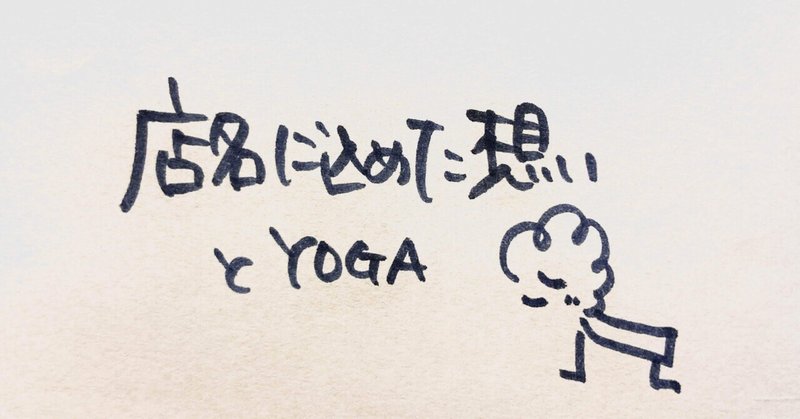 店名に込めた想い
とYOGA